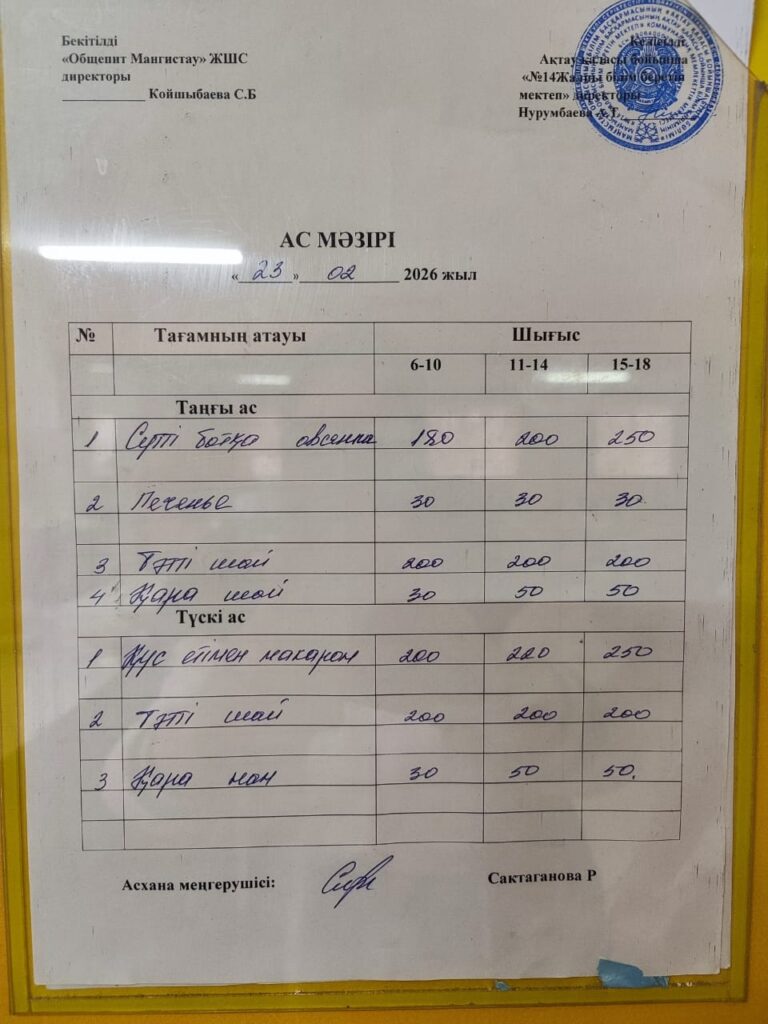 Бекітілді
«Общепит Мангистау» ЖШС
директоры
____________ Койшыбаева С.Б
Келісілді
Ақтау қаласы бойынша
«№14Жалпы білім беретін
мектеп» директоры
Нурумбаева А.Т.
АС МӘЗІРІ
«23» 02 2026 жыл
№ Тағамның атауы Шығыс
6-10 11-14 15-18
Таңғы ас
1 Сүтті ботқа овсянка 180 200 250
2 Печенье 30 30 30
3 Тәтті шай 200 200 200
4 Қара шай 30 50 50
Түскі ас
1 Құс етімен макарон 200 220 250
2 Тәтті шай 200 200 200
3 Қара нан 30 50 50.
Асхана меңгерушісі: Сактаганова Р